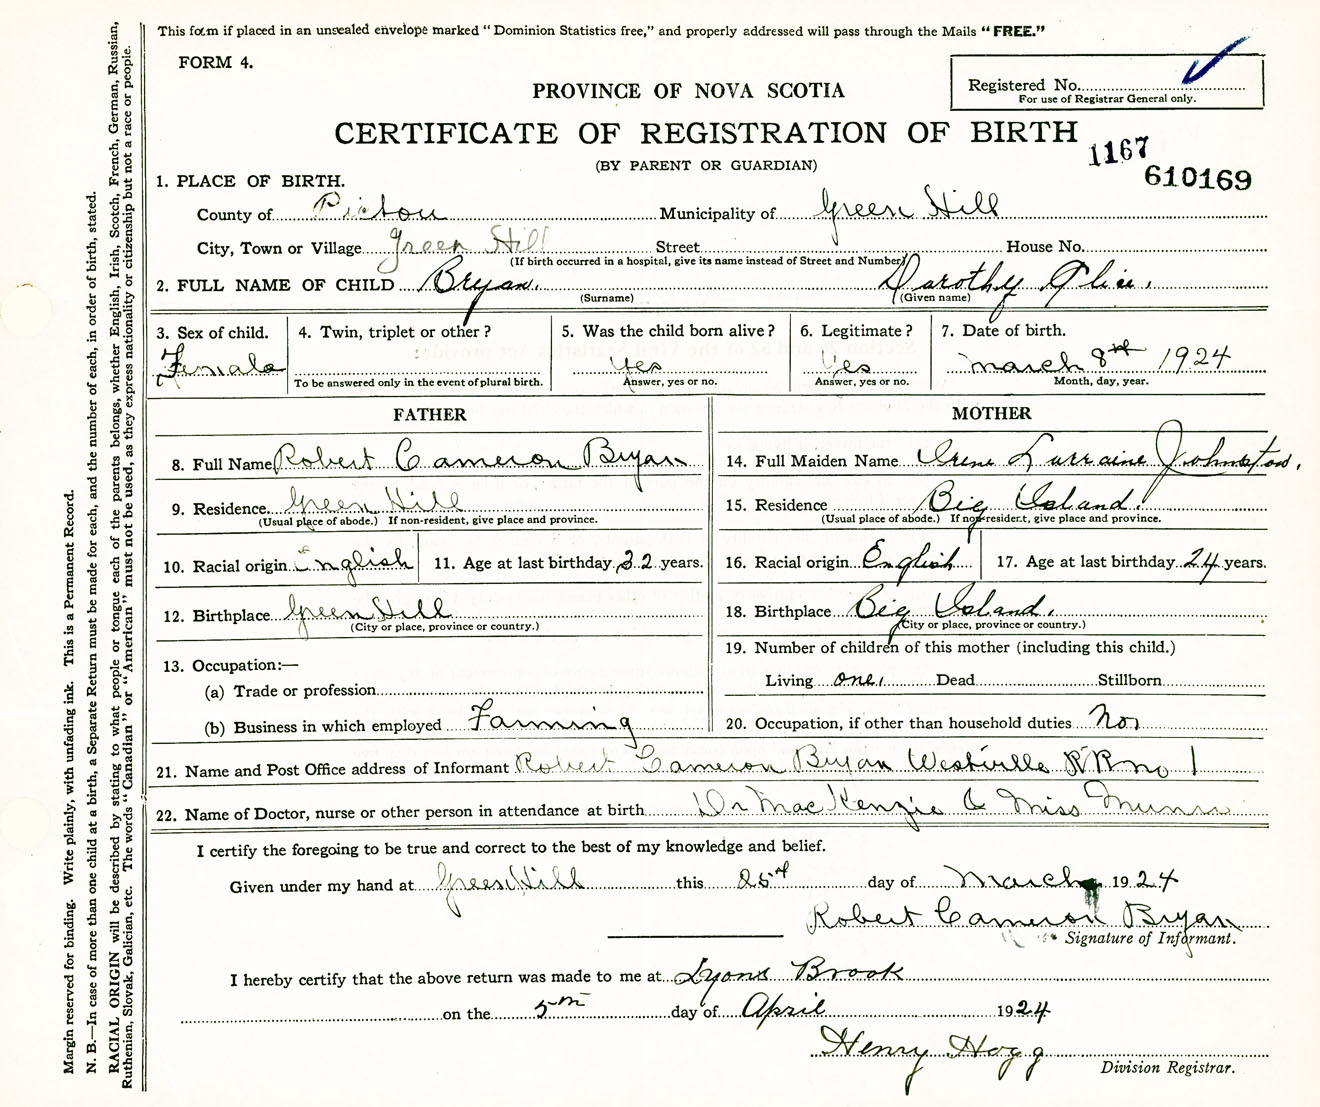 This form if placed in an unsealed envelope marked "Dominion Statistics free," and properly addressed will pass through the Mails "FREE."
FORM 4.
Registered No.
For use of Registrar General only.
PROVINCE OF NOVA SCOTIA
CERTIFICATE OF REGISTRATION OF BIRTH
1167
610169
(BY PARENT OR GUARDIAN)
1. PLACE OF BIRTH.
County of Pictou Municipality of Green Hill
City, Town or Village Green Hill Street House No.
(If birth occurred in a hospital, give its name instead of Street and Number)
2. FULL NAME OF CHILD Bryan. Dorothy Olive.
(Surname) (Given name)
3. Sex of child. 4. Twin, triplet or other? 5. Was the child born alive? 6. Legitimate? 7. Date of birth.
Female yes Yes March 8 1924
To be answered only in the event of plural birth. Answer, yes or no. Answer, yes or no. Month, day, year.
FATHER MOTHER
8. Full Name Robert Cameron Bryan 14. Full Maiden Name Irene Lurraine Johnston.
9. Residence Green Hill 15. Residence Big Island.
(Usual place of abode.) If non-resident, give place and province. (Usual place of abode.) If non-resident, give place and province.
10. Racial origin English 11. Age at last birthday 32 years. 16. Racial origin English 17. Age at last birthday 24 years.
12. Birthplace Green Hill 18. Birthplace Big Island.
(City or place, province or country.) (City or place, province or country.)
13. Occupation:— 19. Number of children of this mother (including this child.)
(a) Trade or profession Living one. Dead Stillborn
(b) Business in which employed Farming 20. Occupation, if other than household duties No.
21. Name and Post Office address of Informant Robert Cameron Bryan Westville RR no 1
22. Name of Doctor, nurse or other person in attendance at birth Dr MacKenzie & Miss Munro
I certify the foregoing to be true and correct to the best of my knowledge and belief.
Given under my hand at Green Hill this 25 day of March 1924
Robert Cameron Bryan
Signature of Informant.
I hereby certify that the above return was made to me at Lyons Brook
on the 5th day of April 1924
Henry Hogg
Division Registrar.
Margin reserved for binding. Write plainly, with unfading ink. This is a Permanent Record.
N. B.—In case of more than one child at a birth, a Separate Return must be made for each, and the number of each, in order of birth, stated.
RACIAL ORIGIN will be described by stating to what people or tongue each of the parents belongs, whether English, Irish, Scotch, French, German, Russian,
Ruthenian, Slovak, Galician, etc. The words "Canadian" or "American" must not be used, as they express nationality or citizenship but not a race or people.